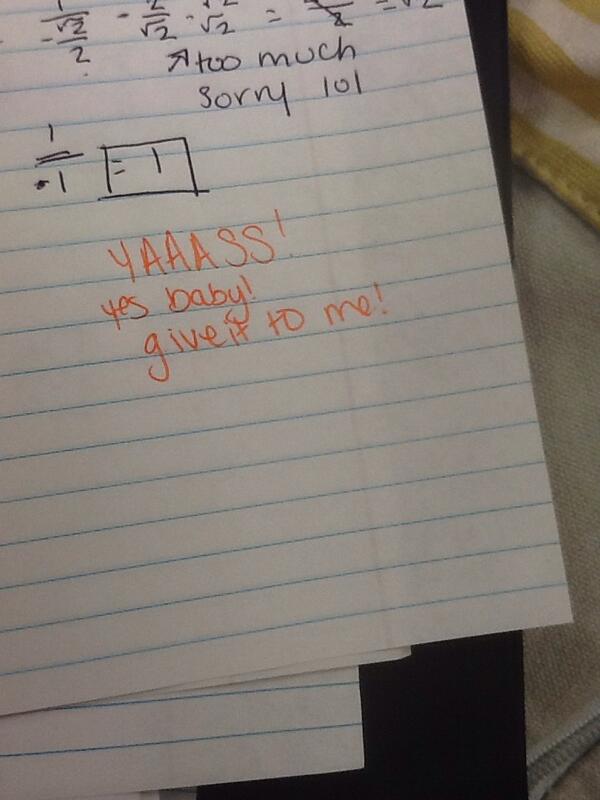 1/(-√2/2) - 2/√2 · √2/√2 = 2 = √2
↗ too much
sorry lol
1/-1 = 1
YAAASS!
yes baby!
give it to me!